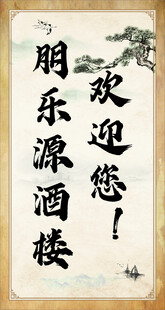 朋乐源酒楼
欢迎您！